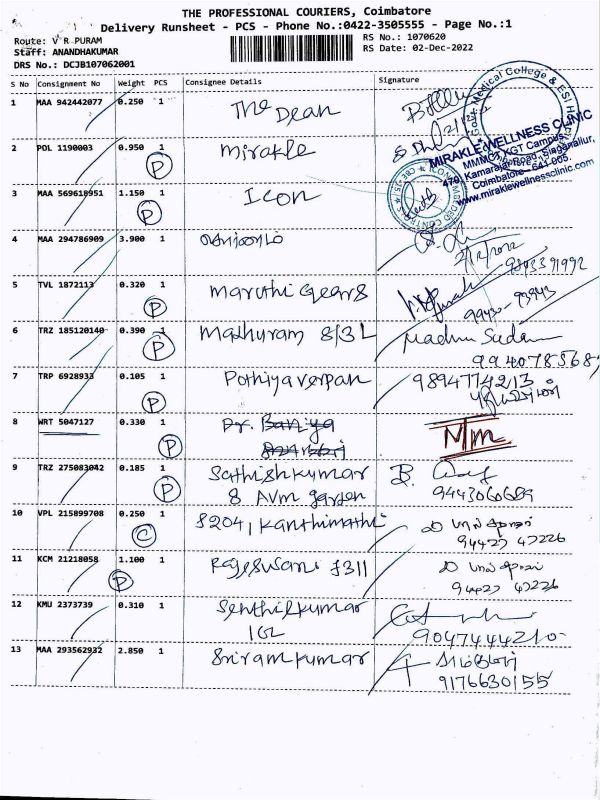 THE PROFESSIONAL COURIERS, Coimbatore
Delivery Runsheet - PCS - Phone No.:0422-3505555 - Page No.:1
Route: V R PURAM
Staff: ANANDHAKUMAR
DRS No.: DCJB107062001
RS No.: 1070620
RS Date: 02-Dec-2022
S No Consignment No Weight PCS Consignee Details Signature
1 MAA 942442077 0.250 1 The Dean
Govt. Medical College & ESI
2 POL 1190003 0.950 1 Mirakle
P
MIRAKLE WELLNESS CLINIC
MMMCH, KGT Campus,
479, Kamarajar Road, Singanallur,
Coimbatore - 641 005.
www.miraklewellnessclinic.com
3 MAA 569618951 1.150 1 Icon
P
4 MAA 294786909 3.900 1
2/12/2022
5 TVL 1872113 0.320 1 Maruthi Gears
P
9943391992
99430-93943
6 TRZ 185120140 0.390 1 Madhuram 8/3L Madhu Sudan
P
7 TRP 6928933 0.105 1 Pothiyaverpan
P
8 WRT 5047127 0.330 1 Dr. Baniya
P
9 TRZ 275083042 0.185 1 Sathishkumar
8 AVM garden
P
9443060689
10 VPL 215899708 0.250 1 F204, Kanthimathi
C
94427 47226
11 KCM 21218058 1.100 1 Rajeswari F311
P
94427 47226
12 KMU 2373739 0.310 1 Senthilkumar
9047444210
13 MAA 293562932 2.850 1 Sriramkumar
9176630155